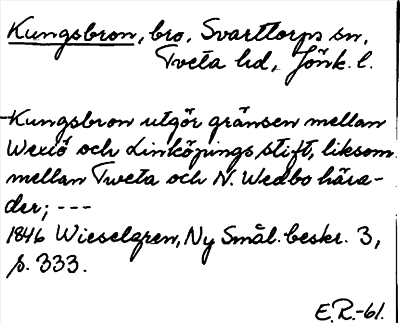 Kungsbron, bro, Svarttorps sn,
Tveta hd, Jönk. l.
Kungsbron utgör gränsen mellan
Wexiö och Linköpings stift, liksom
mellan Tweta och N. Wedbo hära-
der; ---
1846 Wieselgren, Ny Smål. beskr. 3,
s. 333.
E.R.-61.